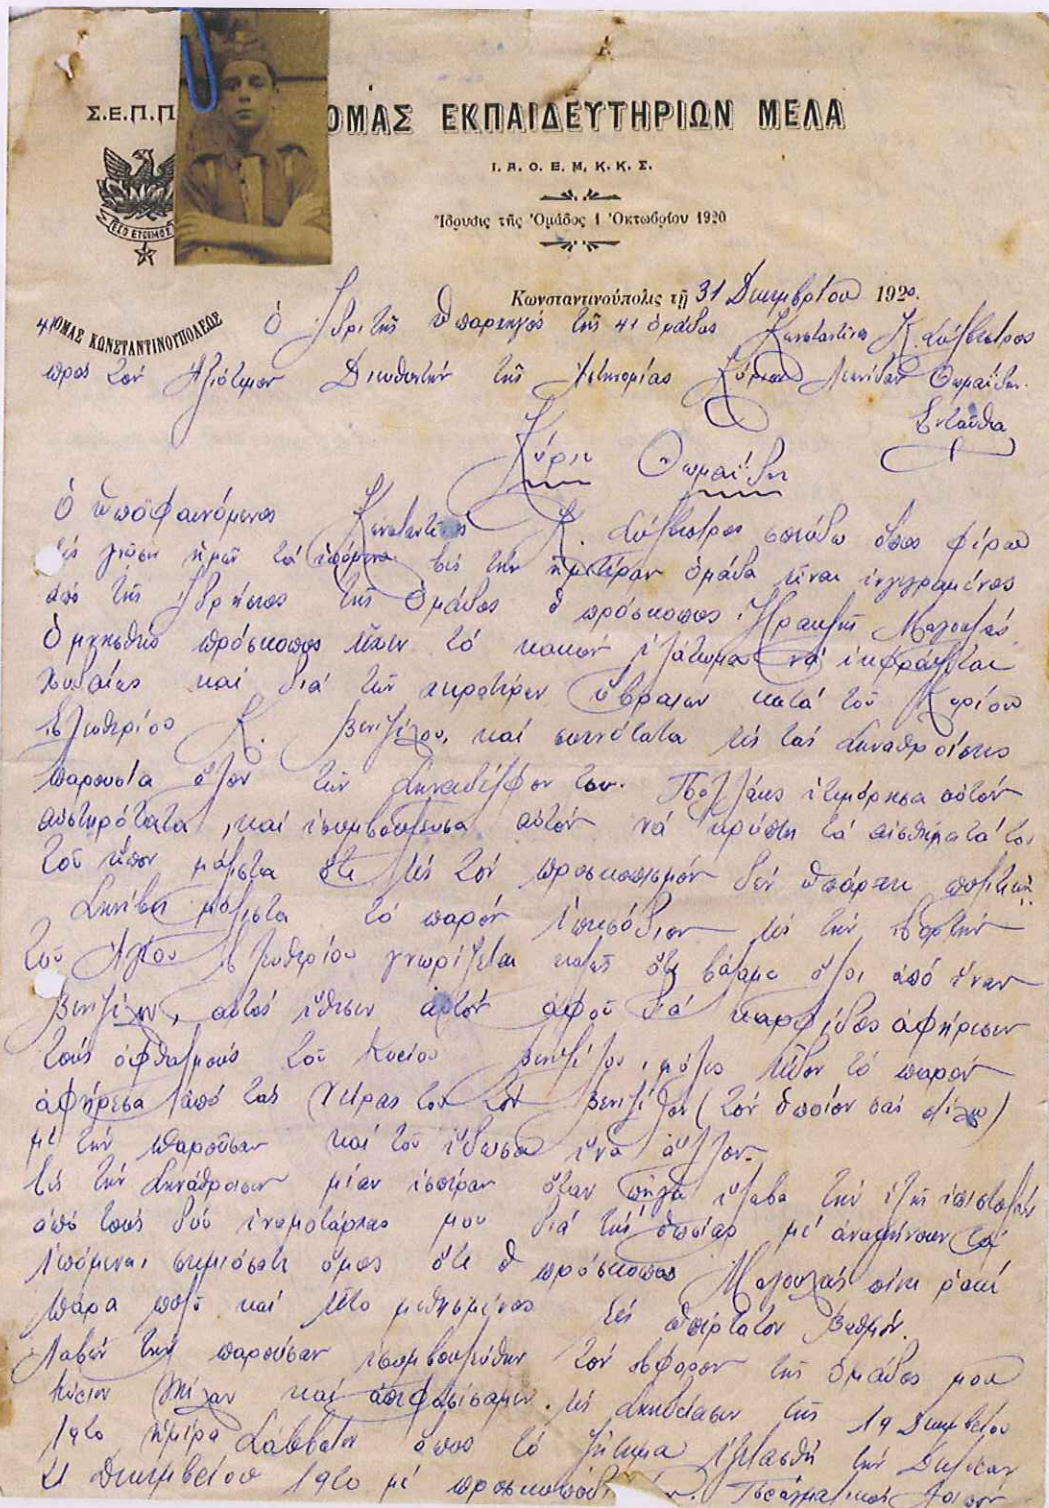 Σ.Ε.Π.Π
ΟΜΑΣ ΕΚΠΑΙΔΕΥΤΗΡΙΩΝ ΜΕΛΑ
Ι. Α. Ο. Ε. Μ. Κ. Κ. Σ.
Ἵδρυσις τῆς Ὁμάδος 1 Ὀκτωβρίου 1920
ΕΣΟ ΕΤΟΙΜΟΣ
Κωνσταντινούπολις τῇ 31 Δεκεμβρίου 1920.
41 ΟΜΑΣ ΚΩΝΣΤΑΝΤΙΝΟΥΠΟΛΕΩΣ
Ὁ ἱδρυτὴς ὑπαρχηγός τῆς 41 ὁμάδος Κωνσταντῖνος Κ.
προς τον Ἀξιότιμον Διευθυντήν της Ἀστυνομίας Κύριον Λεωνίδαν Θωμαΐδην.
Ἐνταῦθα
Κύριε Θωμαΐδη
Ὁ ὑποφαινόμενος Κωνσταντῖνος Κ. σπεύδω ὅπως φέρω
εἰς γνῶσιν ὑμῶν τά ἑπόμενα εἰς τήν ἡμετέραν ὁμάδα εἶναι ἐγγεγραμένος
ἀπό τῆς ἱδρύσεως τῆς Ὁμάδος ὁ πρόσκοπος Ἡρακλῆς
Ὁ μνησθείς πρόσκοπος εἶχεν τό κακόν ἐλάτωμα νά ἐκφράζεται
χυδαίως καί διά τῶν χυδαιοτέρων ὕβρεων κατά τοῦ Κυρίου
Ἐλευθερίου Κ. Βενιζέλου, καί συχνότατα εἰς τάς συναθροίσεις
παρουσία ὅλων τῶν συναδέλφων του. Πολλάκις ἐτιμόρησα αὐτόν
αὐστηρότατα, καί ἐσυμβούλευσα αὐτόν νά κρύπτῃ τά αἰσθήματά του
τοῦ εἶπον μάλιστα ὅτι εἰς τόν προσκοπισμόν δέν ὑπάρχει πολιτική.
Συνέβη μάλιστα τό παρόν ἐπεισόδιον εἰς τήν ἑορτήν
τοῦ Ἁγίου Ἐλευθερίου γνωρίζεται καλῶς ὅτι βάλαμε ὅλοι ἀπό ἕναν
Βενιζέλον, αὐτός ἔθεσεν αὐτόν ἀφοῦ διά καρφίδος ἀφήρεσεν
τούς ὀφθαλμούς τοῦ Κυρίου Βενιζέλου, μόλις εἶδον τό παρόν
ἀφήρεσα ἀπό τάς χείρας του τόν Βενιζέλον (τόν ὁποῖον σᾶς στέλλω)
μέ τήν παροῦσαν καί τοῦ ἔδωσα ἕνα ἄλλον.
Εἰς τήν συνάθροισιν μίαν ἑσπέραν ὅταν πῆγα ἔλαβα τήν ἑξῆς ἐπιστολήν
ἀπό τούς δύο ἐνωμοτάρχας μου διά τῆς ὁποίας μέ ἀναφέρουν τά
ἑπόμενα, σημειώσατε ὅμως ὅτι ὁ πρόσκοπος πίνει ρακί
πάρα πολύ καί ἦτο μεθυσμένος εἰς ὑπέρτατον βαθμόν.
Λαβών τήν παροῦσαν ἐσυμβουλεύθην τόν ἔφορον τῆς ὁμάδος μου
Κύριον Μέλαν καί ἀπεφασίσαμεν εἰς συνεδρίασιν τῆς 19 Δεκεμβρίου
1920 ἡμέρα Σάββατον ὅπως τό ζήτημα ἐξετασθῇ τήν
21 Δεκεμβρίου 1920 μέ